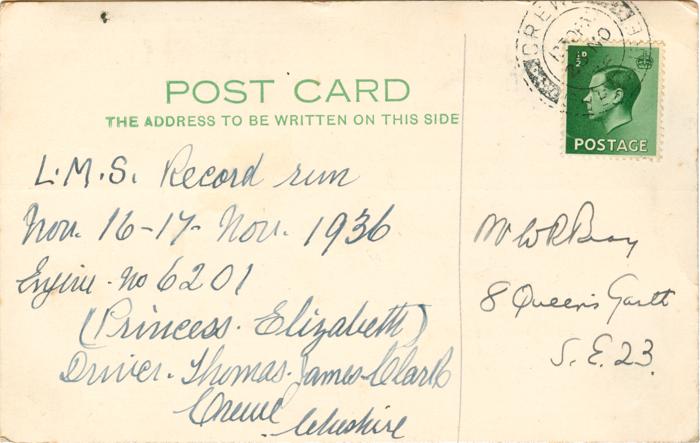 POST CARD
THE ADDRESS TO BE WRITTEN ON THIS SIDE
L.M.S. Record run
Nov. 16-17- Nov. 1936
Engine. no 6201
(Princess. Elizabeth)
Driver. Thomas. James. Clark
Crewe
Cheshire
CREWE
½D
POSTAGE
Mr W R Bray
8 Queen's Garth
S.E.23.